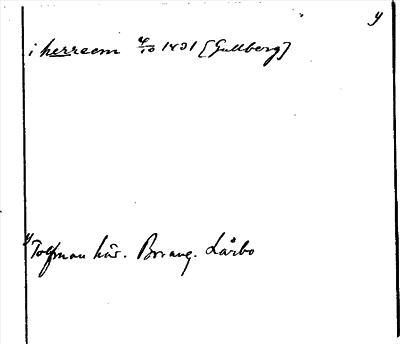 y
i herreem 4/10 1801 [Gullberg]
y Tolfman här. Bonvang. Lärbo